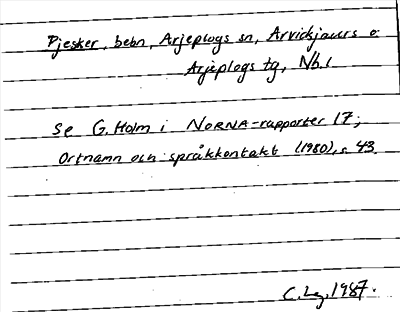 Pjesker, bebn, Arjeplogs sn, Arvidsjaurs o
Arjeplogs tg, Nb.l
Se G. Holm i NORNA-rapporter 17;
Ortnamn och språkkontakt (1980), s 43.
C. Lg, 1987.